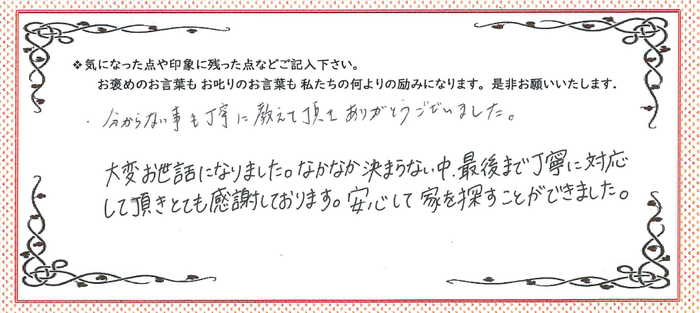 ❖気になった点や印象に残った点などご記入下さい。
お褒めのお言葉も お叱りのお言葉も 私たちの何よりの励みになります。是非お願いいたします.
・分からない事も丁寧に教えて頂き ありがとうございました。
大変お世話になりました。なかなか決まらない中、最後まで丁寧に対応
して頂きとても感謝しております。安心して家を探すことができました。